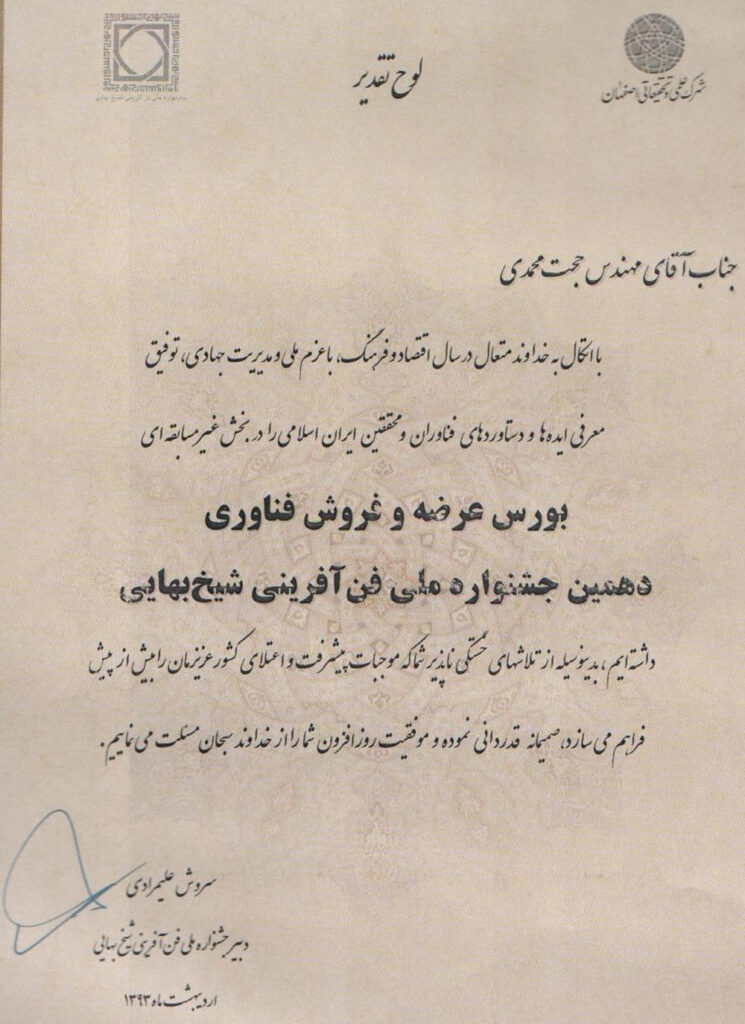 لوح تقدیر
شهرک علمی و تحقیقاتی اصفهان
جشنواره ملی فن آفرینی شیخ بهایی
جناب آقای مهندس حجت محمدی
با اتکال به خداوند متعال در سال اقتصاد و فرهنگ، با عزم ملی و مدیریت جهادی، توفیق
معرفی ایده‌ها و دستاوردهای فناوران و محققین ایران اسلامی را در بخش غیر مسابقه ای
بورس عرضه و فروش فناوری
دهمین جشنواره ملی فن‌آفرینی شیخ‌بهایی
داشته‌ایم، بدینوسیله از تلاشهای خستگی ناپذیر شما که موجبات پیشرفت و اعتلای کشور عزیزمان را بیش از پیش
فراهم می سازد، صمیمانه قدردانی نموده و موفقیت روزافزون شما را از خداوند سبحان مسئلت می نماییم.
سروش علیمرادی
دبیر جشنواره ملی فن آفرینی شیخ بهایی
اردیبهشت ماه ۱۳۹۳